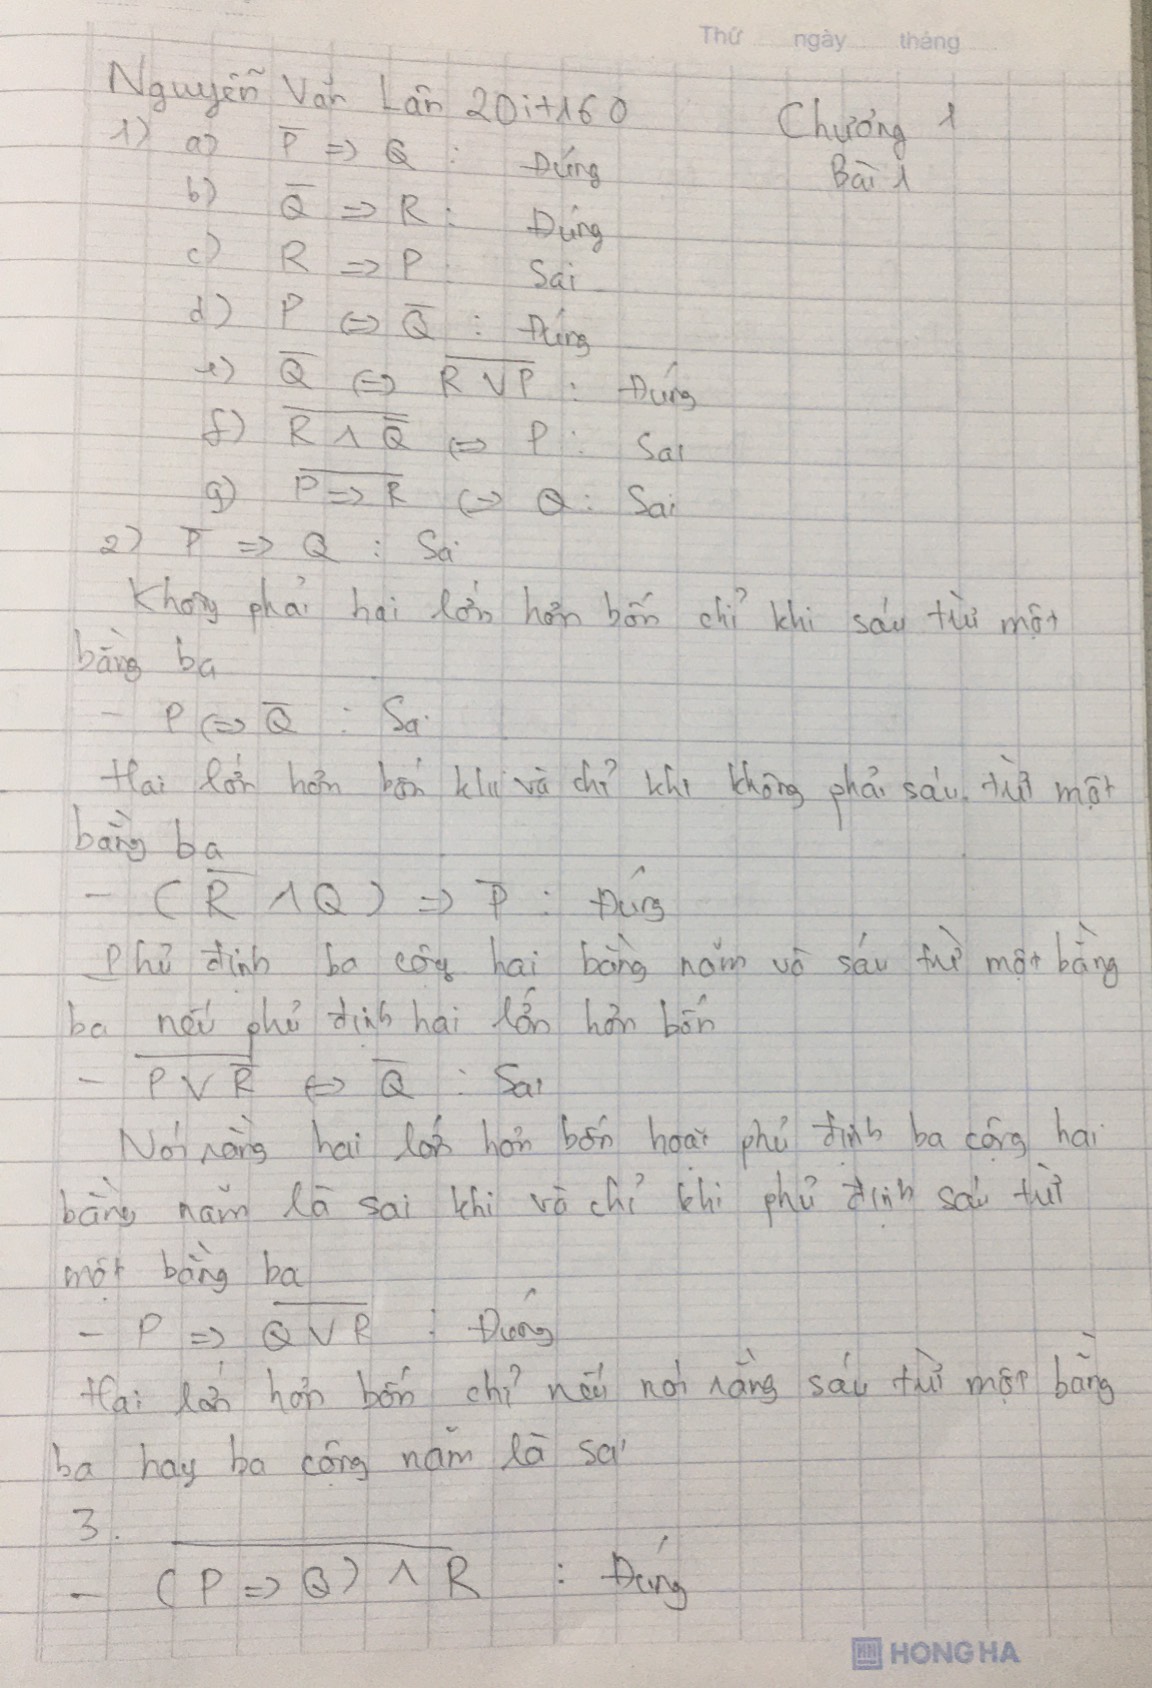 Thứ ngày tháng
Nguyễn Văn Lân 20it160
Chương 1
Bài 1
1) a) P̅ => Q : Đúng
b) Q̅ => R : Đúng
c) R => P : Sai
d) P <=> Q̅ : Đúng
e) Q̅ <=> \overline{R ∨ P} : Đúng
f) \overline{R ∧ Q̅} <=> P : Sai
g) \overline{P => R} <=> Q : Sai
2) P̅ => Q : Sai
Không phải hai lớn hơn bốn chỉ khi sáu trừ một
bằng ba
- P <=> Q̅ : Sai
Hai lớn hơn bốn khi và chỉ khi không phải sáu trừ một
bằng ba
- (R̅ ∧ Q) => P̅ : Đúng
Phủ định ba cộng hai bằng năm và sáu trừ một bằng
ba nếu phủ định hai lớn hơn bốn
- \overline{P ∨ R̅} <=> Q̅ : Sai
Nói rằng hai lớn hơn bốn hoặc phủ định ba cộng hai
bằng năm là sai khi và chỉ khi phủ định sáu trừ
một bằng ba
- P => \overline{Q ∨ R} : Đúng
Hai lớn hơn bốn chỉ nếu nói rằng sáu trừ một bằng
ba hay ba cộng năm là sai
3.
- \overline{(P => Q) ∧ R} : Đúng
HONG HA